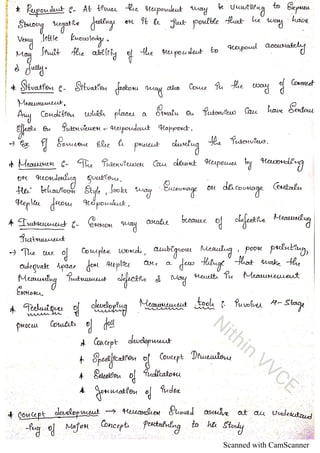 * Respondent :- At times the respondent may be unwilling to express
strong negative feelings or it is just possible that he may have
very little knowledge.
May limit the ability of the respondent to respond accurately
& fully.
* Situation :- Situation factors may also come in the way of correct
Measurement.
Any Condition which places a strain on interview can have serious
effects on Interviewer - respondent Rapport.
→ Ex If someone else is present during the interview.
* Measurer :- The Interviewer can distort responses by rewording
or reordering questions.
His behaviour style, looks may encourage or discourage certain
replies from respondent.
* Instrument :- Error may arise because of defective Measuring
Instrument
→ The use of complex words, ambiguous Meaning, poor printing,
adequate space for replies are a few things that make the
Measuring instrument defective & May result in Measurement
Errors.
* Techniques of developing Measurement tools :- Involves 4-stage
process consists of foll
* Concept development
* Specification of Concept Dimensions
* Selection of Indicators
* Formation of Index
* Concept development → Researcher should arrive at an understand
-ing of Major Concepts pertaining to his study
Nithin VVCE
Scanned with CamScanner